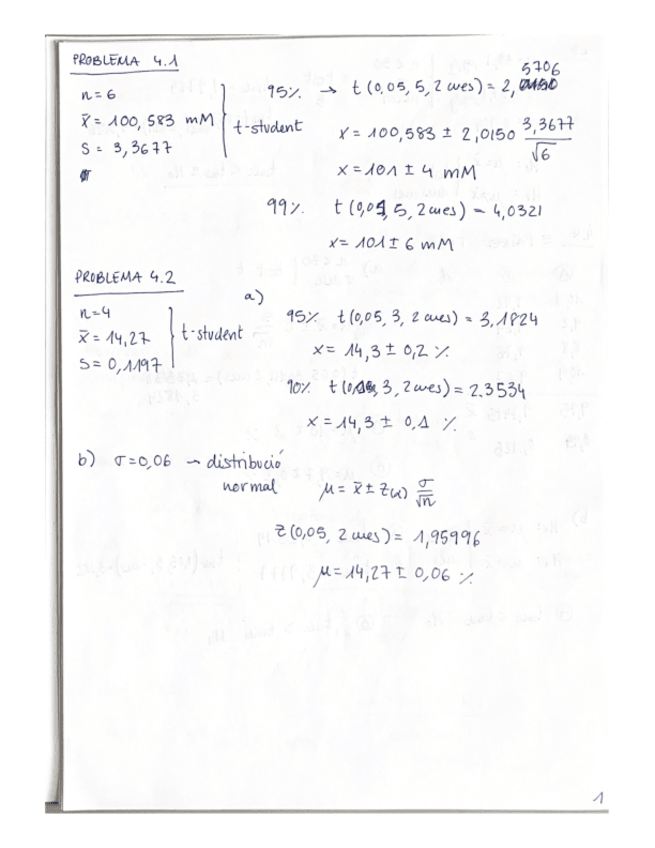 PROBLEMA 4.1
n=6
x̄ = 100,583 mM
S = 3,3677
t-student
95% → t(0,05, 5, 2 cues) = 2,5706
x = 100,583 ± 2,0150 3,3677/√6
x = 101 ± 4 mM
99% t(0,01, 5, 2 cues) = 4,0321
x = 101 ± 6 mM
PROBLEMA 4.2
n=4
x̄ = 14,27
S = 0,1197
t-student
a)
95% t(0,05, 3, 2 cues) = 3,1824
x = 14,3 ± 0,2 %
90% t(0,10, 3, 2 cues) = 2.3534
x = 14,3 ± 0,1 %
b) σ=0,06 → distribució
normal
μ = x̄ ± z(α) σ/√n
z(0,05, 2 cues) = 1,95996
μ = 14,27 ± 0,06 %
1